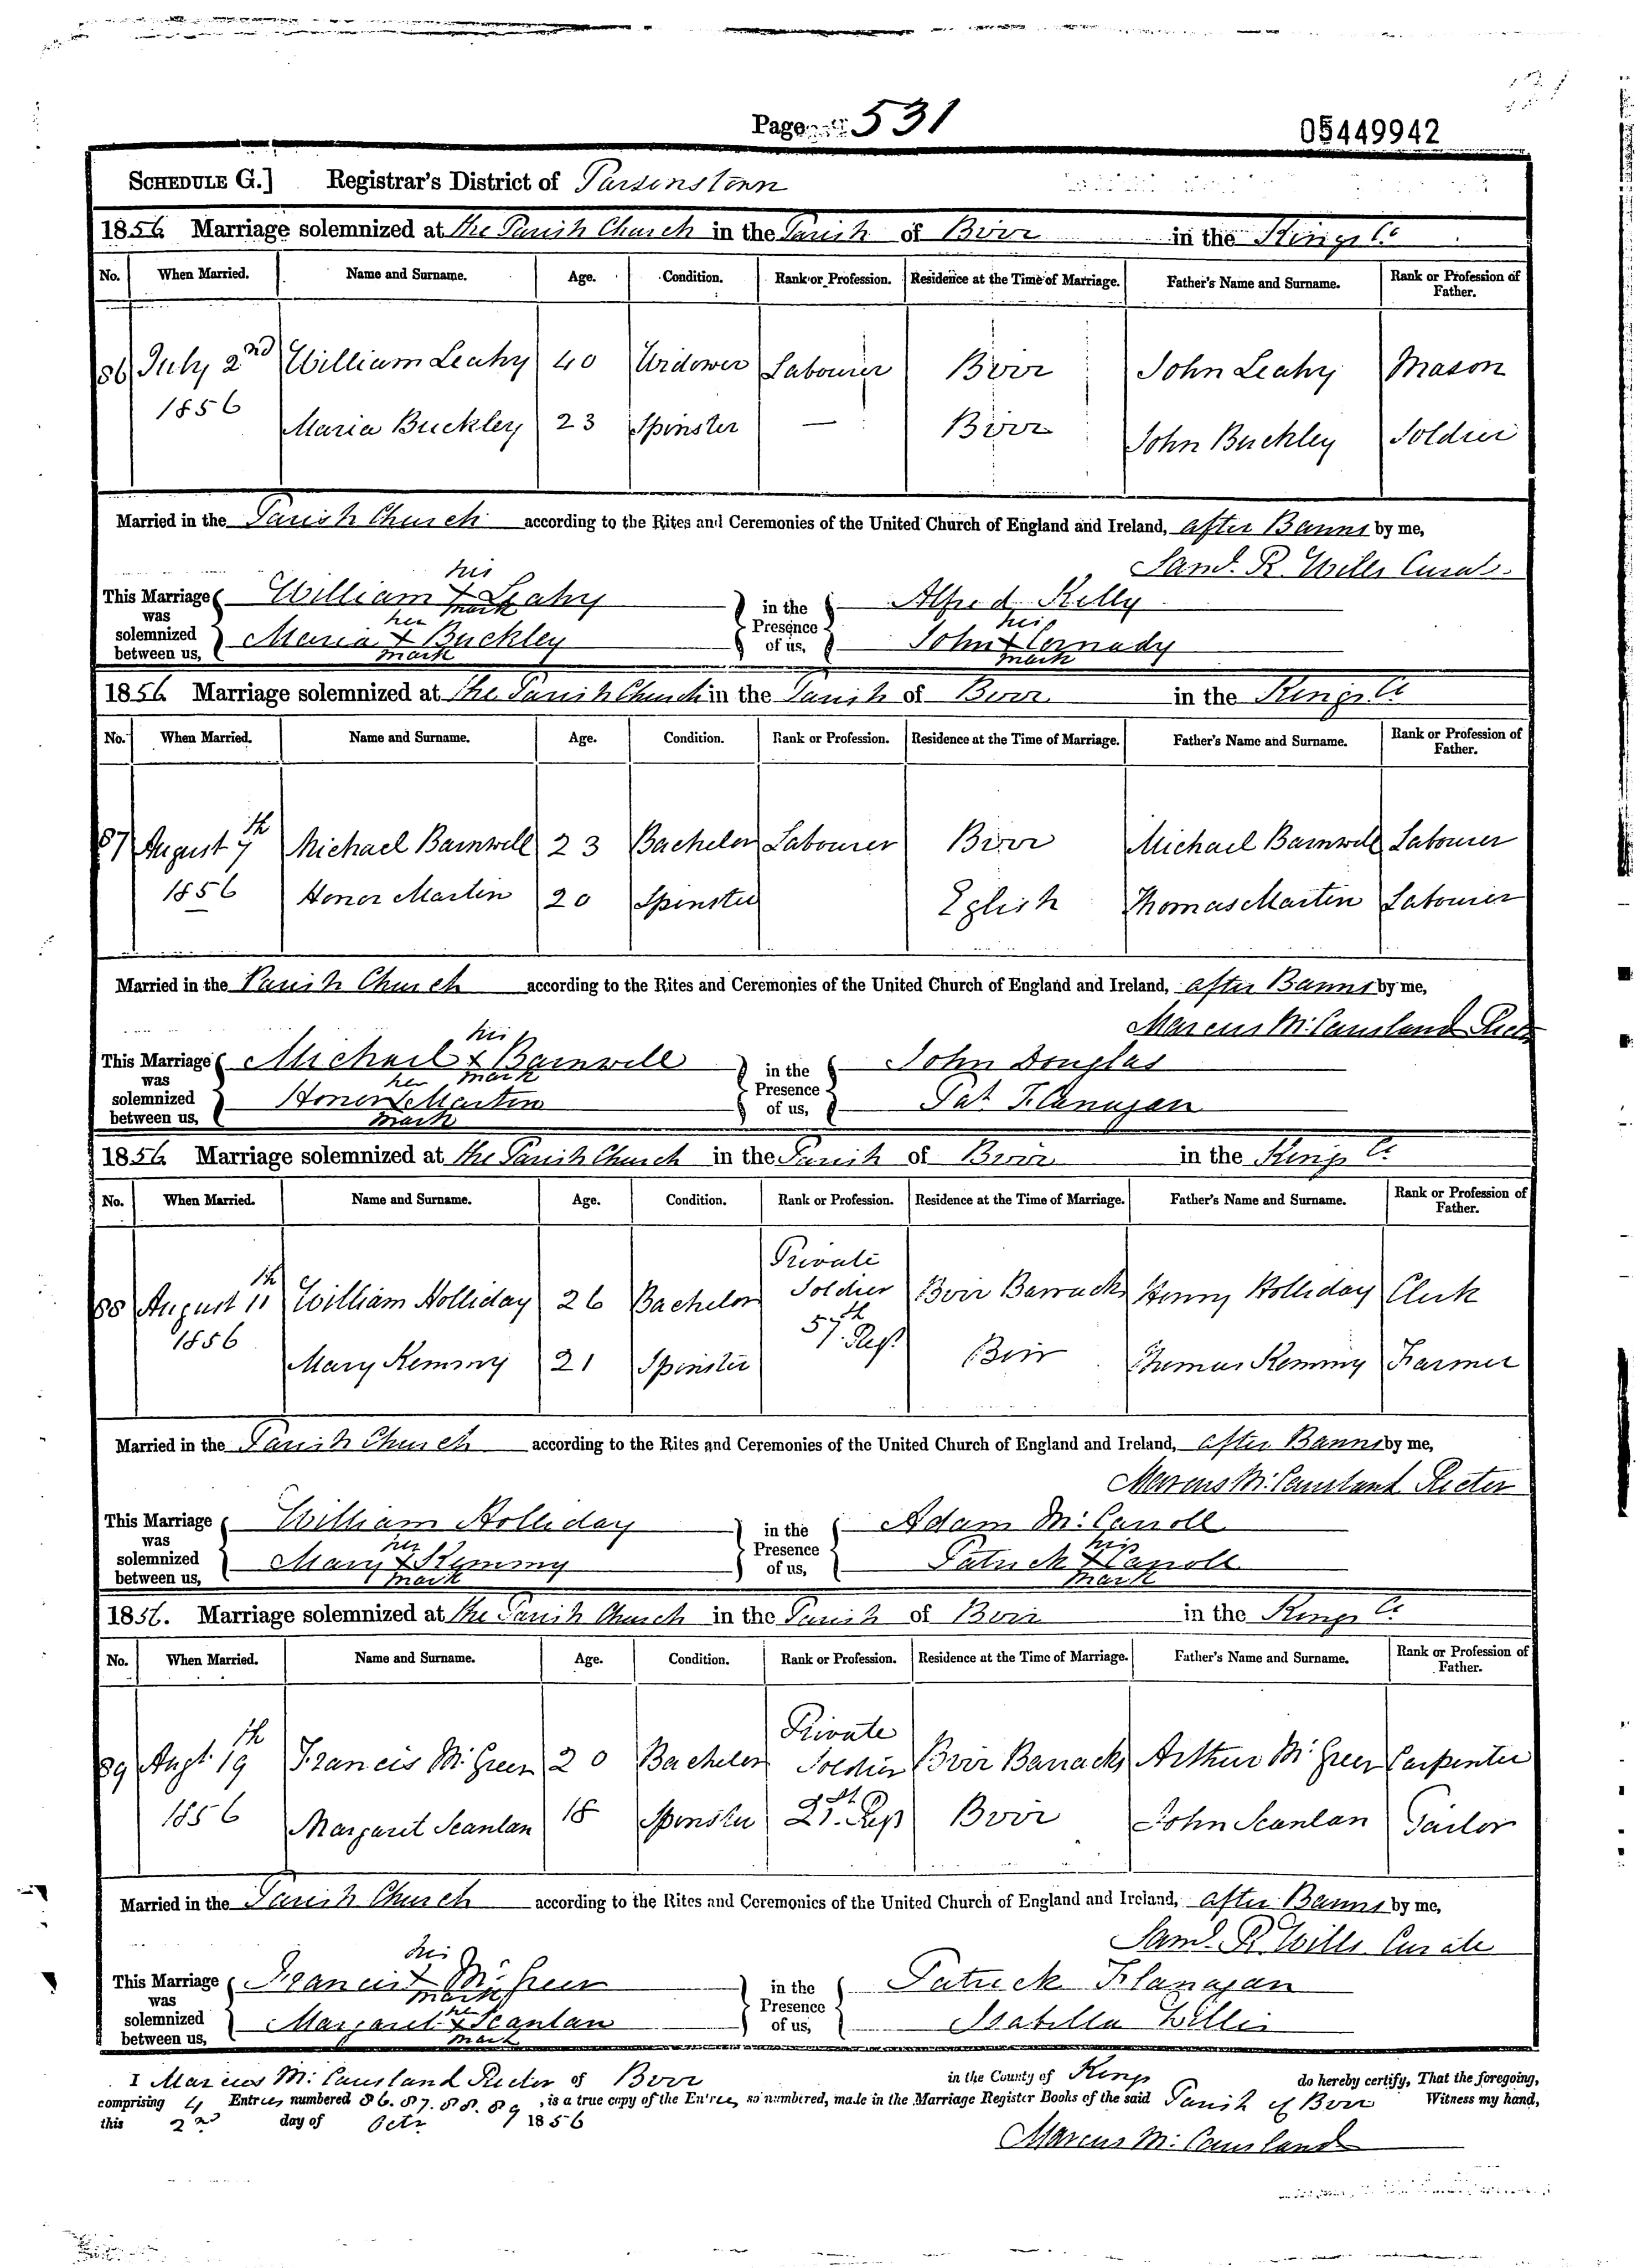 Page 531
05449942
SCHEDULE G.] Registrar's District of Parsonstown
1856. Marriage solemnized at the Parish Church in the Parish of Birr in the Kings Co
No. When Married. Name and Surname. Age. Condition. Rank or Profession. Residence at the Time of Marriage. Father's Name and Surname. Rank or Profession of Father.
86 July 2nd William Leahy 40 Widower Labourer Birr John Leahy Mason
1856 Maria Buckley 23 Spinster — Birr John Buckley Soldier
Married in the Parish Church according to the Rites and Ceremonies of the United Church of England and Ireland, after Banns by me,
Saml. R. Wills Curate
This Marriage was solemnized between us, William his X mark Leahy in the Presence of us, Alfred Kelly
Maria her X mark Buckley John his X mark
1856. Marriage solemnized at the Parish Church in the Parish of Birr in the Kings Co
No. When Married. Name and Surname. Age. Condition. Rank or Profession. Residence at the Time of Marriage. Father's Name and Surname. Rank or Profession of Father.
87 August 7th Michael Barnwell 23 Bachelor Labourer Birr Michael Barnwell Labourer
1856 Honor Martin 20 Spinster Eglish Thomas Martin Labourer
Married in the Parish Church according to the Rites and Ceremonies of the United Church of England and Ireland, after Banns by me,
Marcus McCausland Rector
This Marriage was solemnized between us, Michael his X mark Barnwell in the Presence of us, John Douglas
Honor her X mark Martin Pat Flanagan
1856. Marriage solemnized at the Parish Church in the Parish of Birr in the Kings Co
No. When Married. Name and Surname. Age. Condition. Rank or Profession. Residence at the Time of Marriage. Father's Name and Surname. Rank or Profession of Father.
88 August 11th William Holliday 26 Bachelor Private Soldier 57th Regt Birr Barracks Henry Holliday Clerk
1856 Mary Kemmy 21 Spinster Birr Thomas Kemmy Farmer
Married in the Parish Church according to the Rites and Ceremonies of the United Church of England and Ireland, after Banns by me,
Marcus McCausland Rector
This Marriage was solemnized between us, William Holliday in the Presence of us, Adam McCarroll
Mary her X mark Kemmy Patrick his X mark Carroll
1856. Marriage solemnized at the Parish Church in the Parish of Birr in the Kings Co
No. When Married. Name and Surname. Age. Condition. Rank or Profession. Residence at the Time of Marriage. Father's Name and Surname. Rank or Profession of Father.
89 Augt 19th Francis McGreer 20 Bachelor Private Soldier 21st Reg Birr Barracks Arthur McGreer Carpenter
1856 Margaret Scanlan 18 Spinster Birr John Scanlan Tailor
Married in the Parish Church according to the Rites and Ceremonies of the United Church of England and Ireland, after Banns by me,
Saml. R. Wills Curate
This Marriage was solemnized between us, Francis his X mark McGreer in the Presence of us, Patrick Flanagan
Margaret her X mark Scanlan Isabella Willis
I Marcus McCausland Rector of Birr in the County of Kings do hereby certify, That the foregoing,
comprising 4 Entries numbered 86. 87. 88. 89, is a true copy of the Entries so numbered, made in the Marriage Register Books of the said Parish of Birr Witness my hand,
this 2nd day of Octr 1856
Marcus McCausland